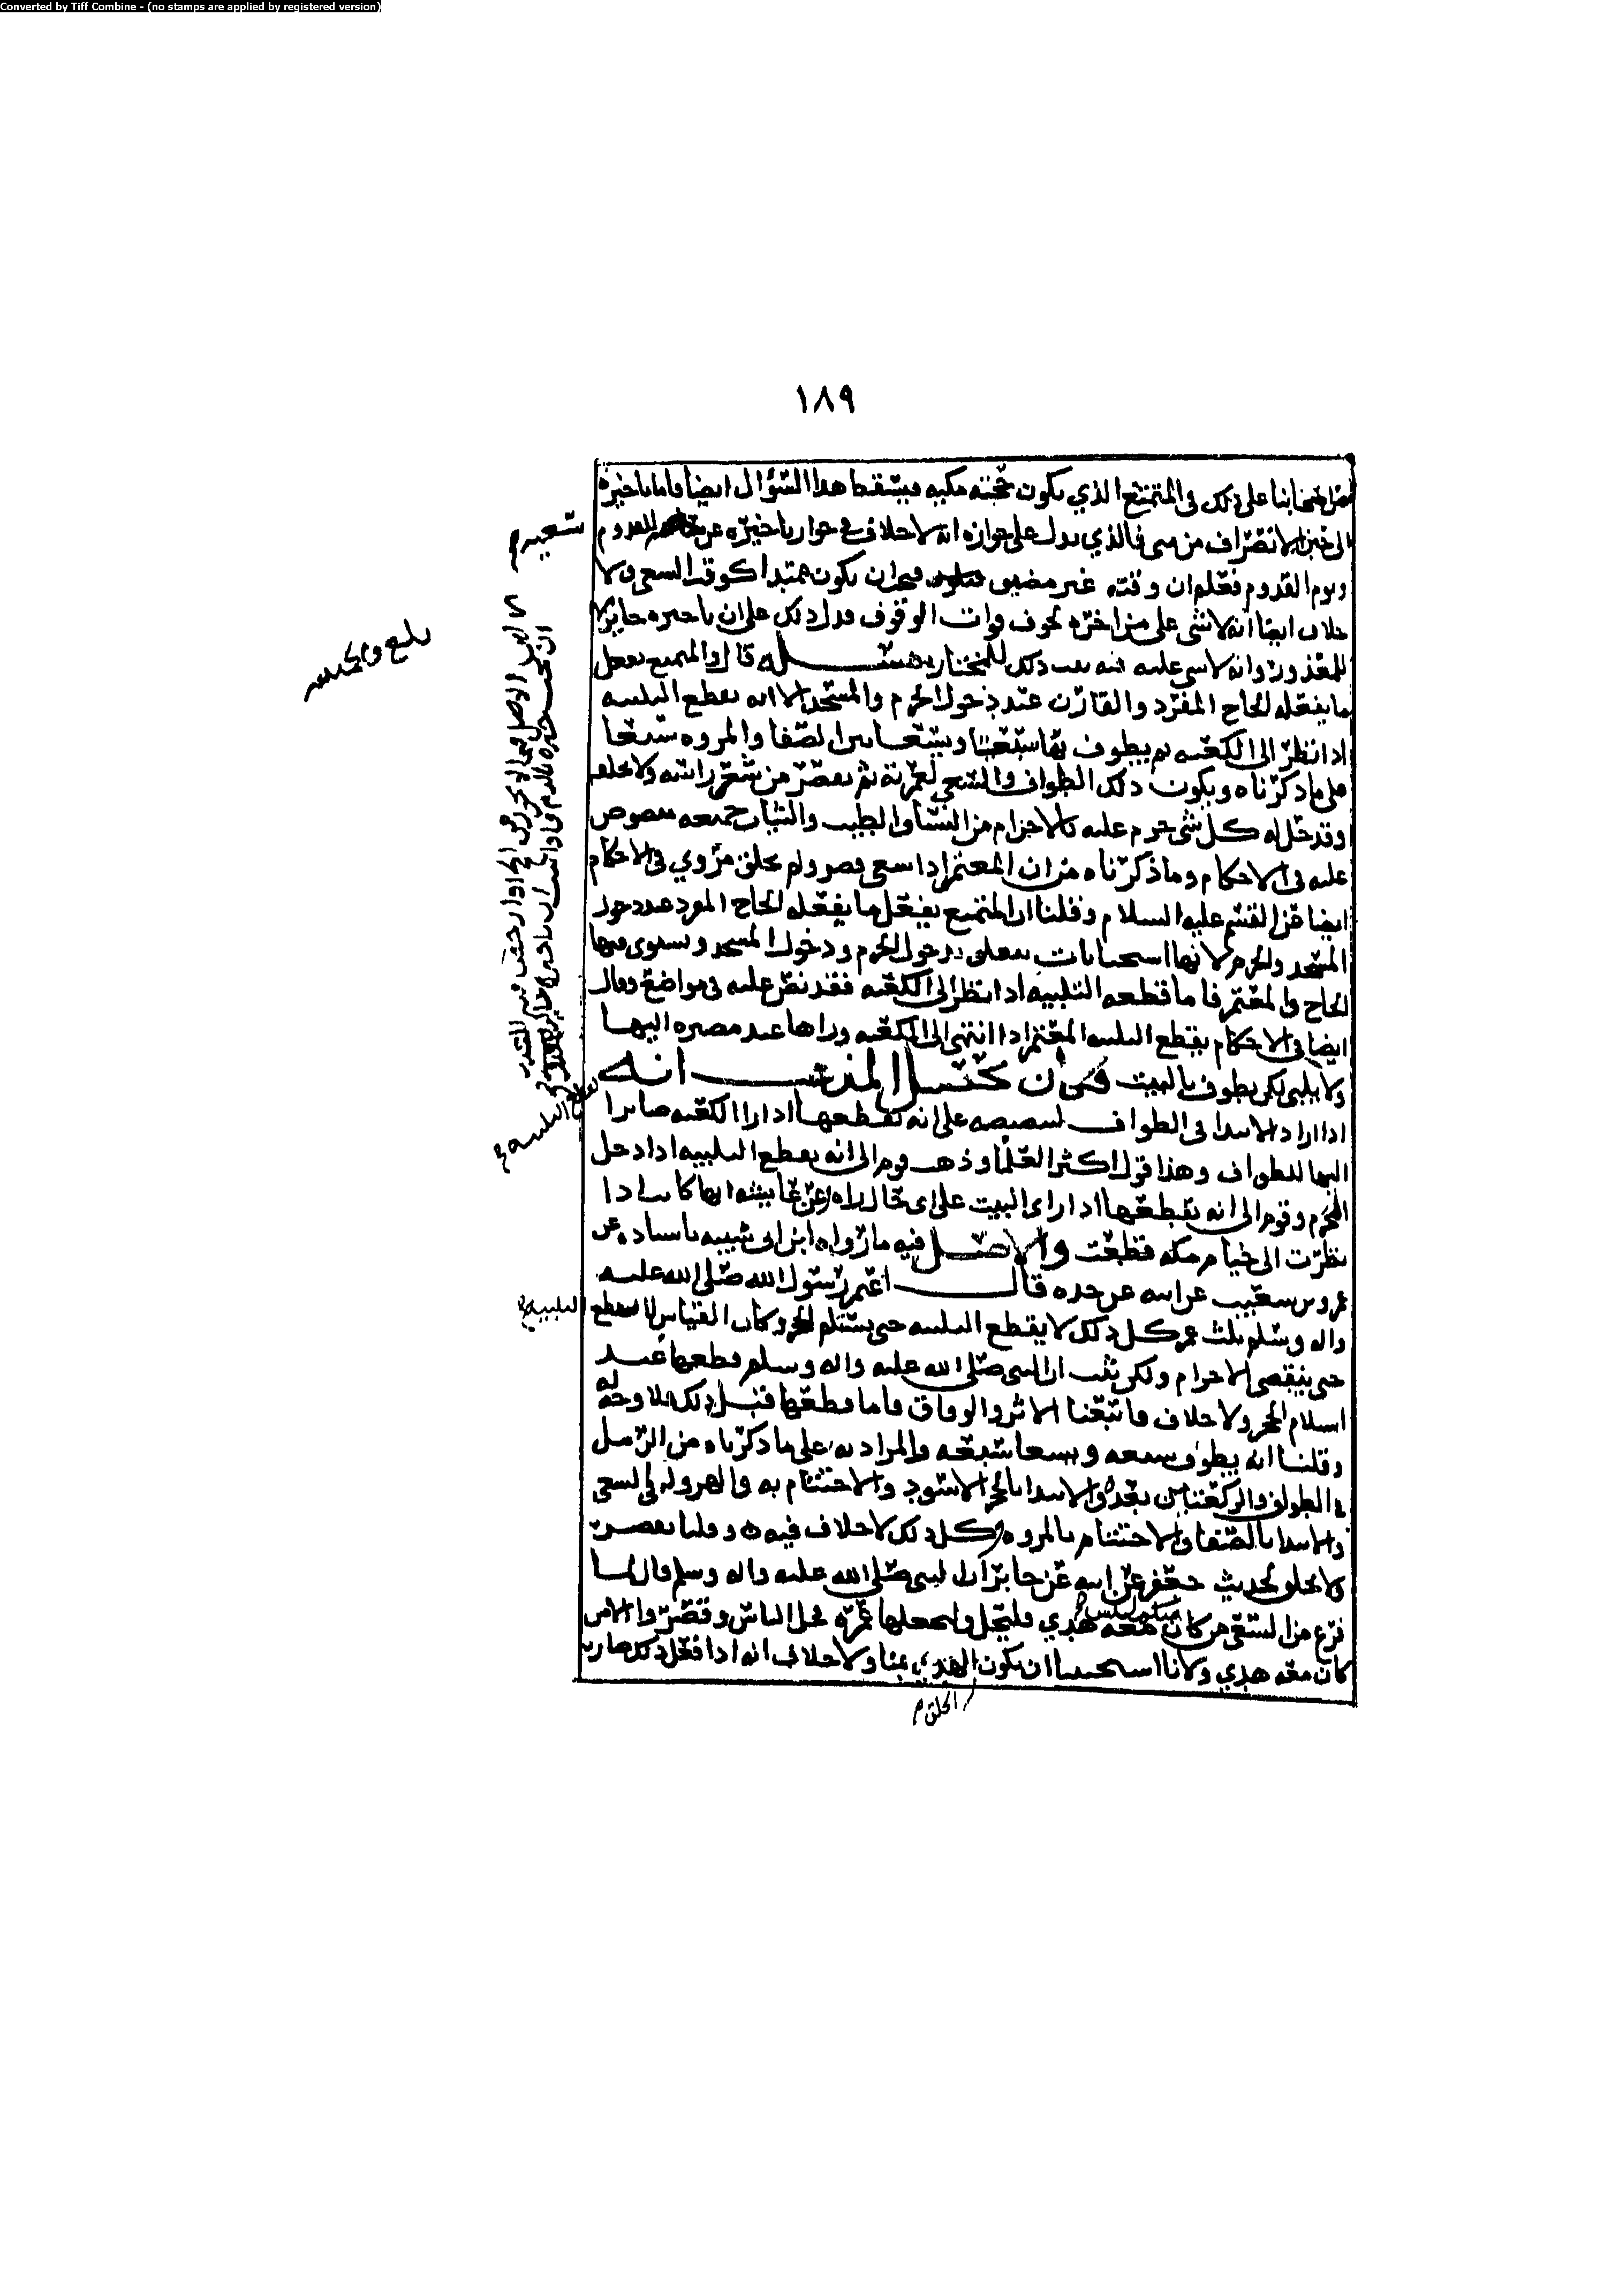 Converted by Tiff Combine - (no stamps are applied by registered version)
١٨٩
اصحابنا على ذلك في المتمتع الذي يكون حجته مكيه فيسقط هدا السؤال ايضا واما تاخيره
الى حين الانصراف من منى فالذي يدل على جوازه انه لا خلاف في جواز تاخيره عن القدوم
ويوم القدوم فعلم ان وقته غير مضيق فيجب ان يكون ممتدا كوقت السعي ولا
خلاف ايضا انه لا شي على من اخره لخوف فوات الوقوف فدل ذلك على ان تاخيره جايز لا
للمعذور وانه لا شي عليه ذلك للمختار مسئله قال والمتمتع يفعل
ما يفعله الحاج المفرد والقارن عند دخول الحرم والمسجد الا انه يقطع التلبيه
اذا نظر الى الكعبه ثم يطوف بها سبعا ويسعا بين الصفا والمروه سبعا
على ما ذكرناه ويكون ذلك الطواف والسعي لعمرته ثم يقصر من شعر راسه ولا يحلقه
وقد حل له كل شي حرم عليه بالاحرام من النسا والطيب والثياب جميعه منصوص
عليه في الاحكام وما ذكرناه من ان المعتمر اذا سعى قصر ولم يحلق مروي في الاحكام
ايضا عن القسم عليه السلام وقلنا ان المتمتع يفعل ما يفعله الحاج المفرد عند دخول
المسجد والحرم لانها استحبابات تتعلق بدخول الحرم ودخول المسجد ويستوي فيها
الحاج والمعتمر فاما قطعه التلبيه اذا نظر الى الكعبه فقد نص عليه في مواضع وقال
ايضا في الاحكام يقطع التلبيه المعتمر اذا انتهى الى الكعبه وراها عند مصيره اليها
ولا يلبي لكن يطوف بالبيت فكان تحصيل المذهب انه
اذا اراد الابتدا في الطواف لتنصيصه على انه يقطعها اذا را الكعبه صايرا
اليها للطواف وهذا قول اكثر العلما وذهب قوم الى انه يقطع التلبيه اذا دخل
الحرم وقوم الى انه يقطعها اذا راى البيت على اي حال راه وعن عايشه انها كانت اذا
نظرت الى خيام مكه قطعت والاصل فيه ما رواه ابن ابي شيبه باسناده عن
عمرو بن شعيب عن ابيه عن جده قال اعتمر رسول الله صلى الله عليه
واله وسلم ثلث عمر كل ذلك لا يقطع التلبيه حتى يستلم الحجر وكان القياس الا يقطع التلبيه
حتى ينقضي الاحرام ولكن ثبت ان النبي صلى الله عليه واله وسلم قطعها عند
استلام الحجر ولا خلاف فاتبعنا الاثر والوفاق فاما قطعها قبل ذلك فلا وجه له
وقلنا انه يطوف سبعه ويسعا سبعه والمراد به على ما ذكرناه من الرمل
في الطواف والركعتين من بعده والابتدا بالحجر الاسود والاختتام به والهروله في السعي
والابتدا بالصفا والاختتام بالمروه وكل ذلك لا خلاف فيه وقلنا يقصر
ولا يحلق لحديث جعفر عن ابيه عن جابر ان النبي صلى الله عليه واله وسلم قال لما
فرغ من السعي من كان منكم ليس معه هدي فليحل وليجعلها عمره فحل الناس وقصروا الا من
كان معه هدي ولانا استحببنا ان يكون الحلق بمنا ولا خلاف انه اذا فعل ذلك صار